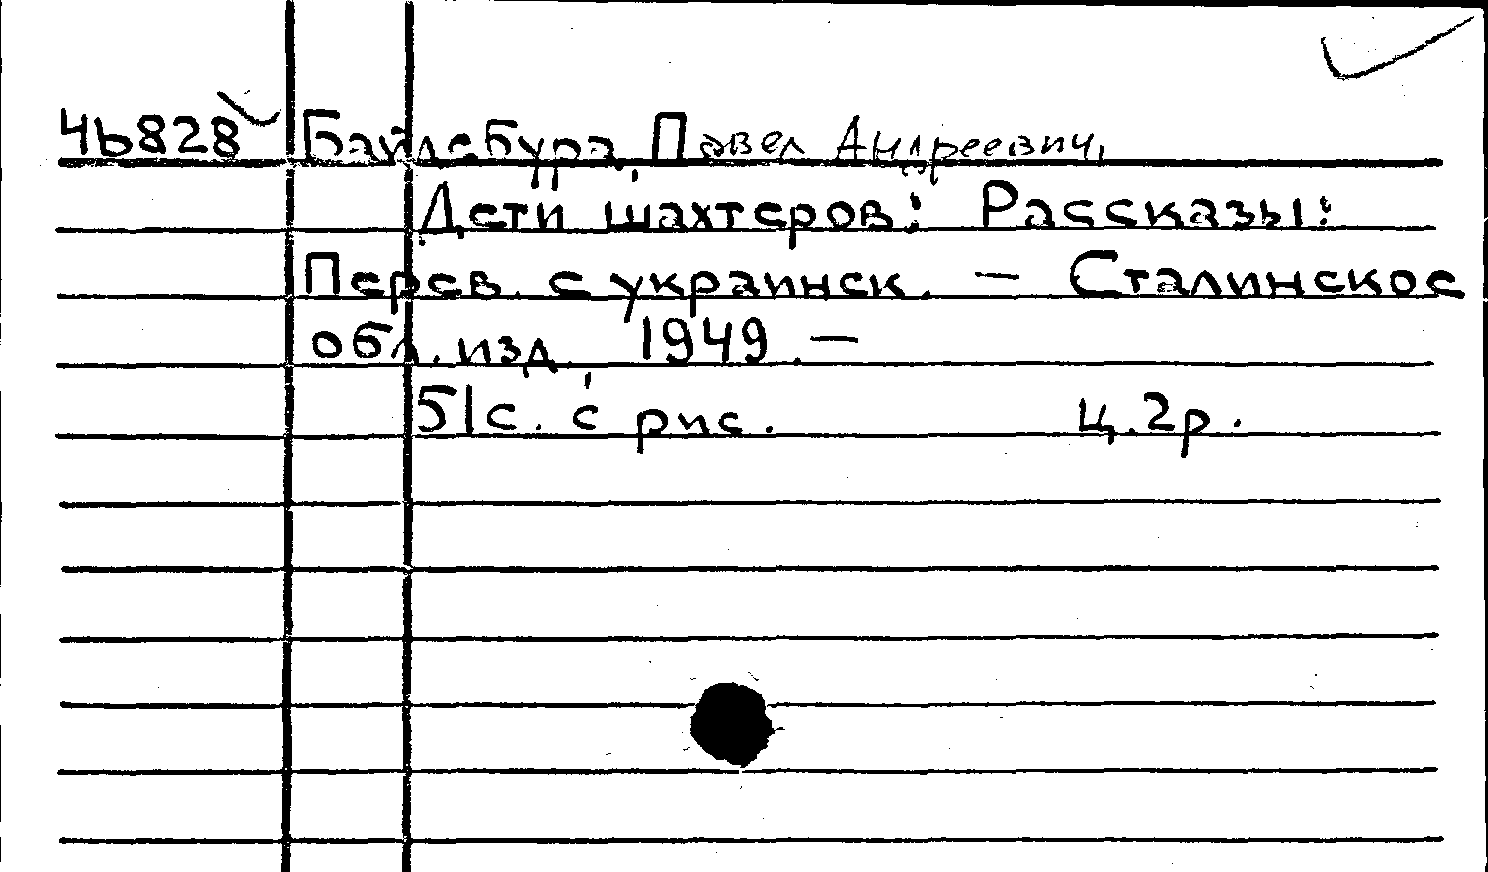 4b828 Байдебура, Павел Андреевич,
Дети шахтеров: Рассказы:
Перев. с украинск. — Сталинское
обл. изд. 1949. —
51с. с рис. ц.2р.